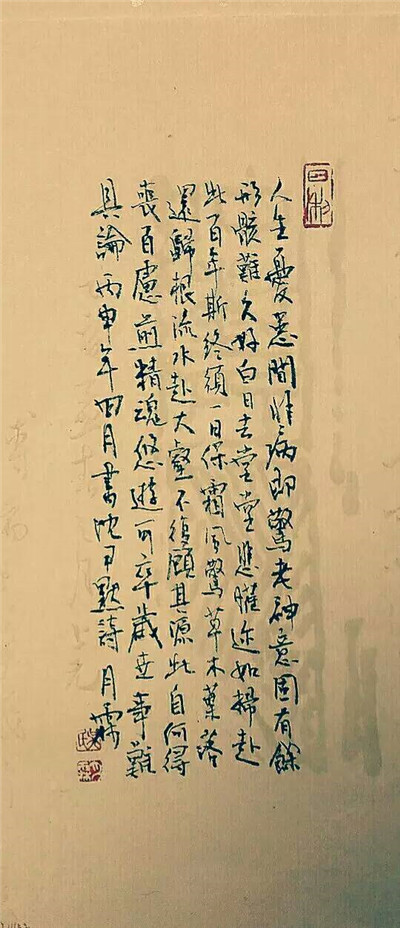 人生憂患間惟病即驚老神意固有餘
形骸難久好白日去堂堂悲懽迹如掃赴
此百年期終須一日保霜風驚草木葉落
還歸根流水赴大壑不復顧其源此自何得
喪百慮煎精魂悠遊可卒歲世事難
具論丙申年四月書沈尹默詩月霖